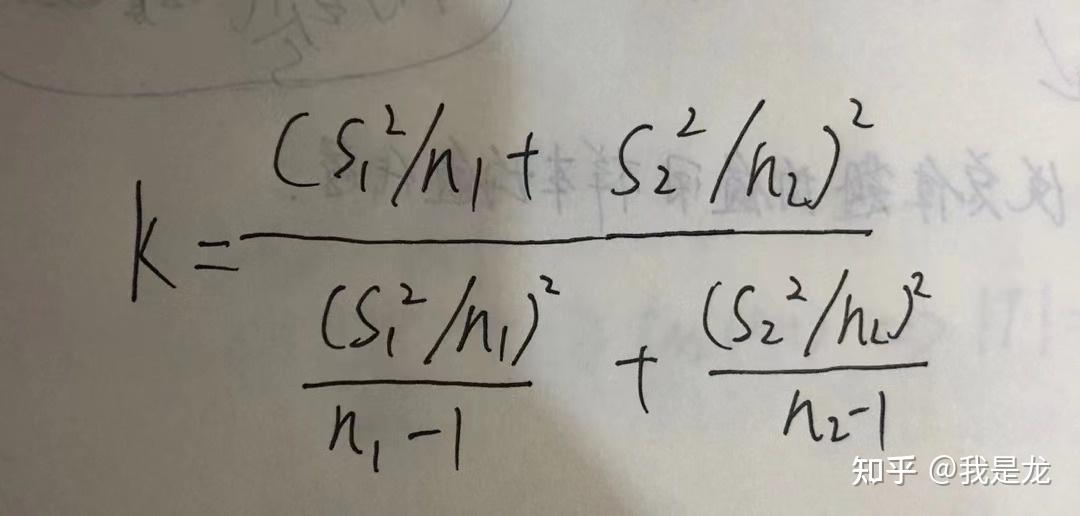 k = \frac{(S_1^2/n_1 + S_2^2/n_2)^2}{\frac{(S_1^2/n_1)^2}{n_1-1} + \frac{(S_2^2/n_2)^2}{n_2-1}}
知乎 @我是龙